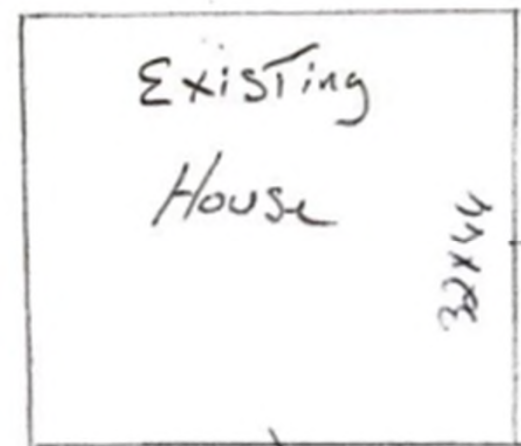 Existing
House
32x44